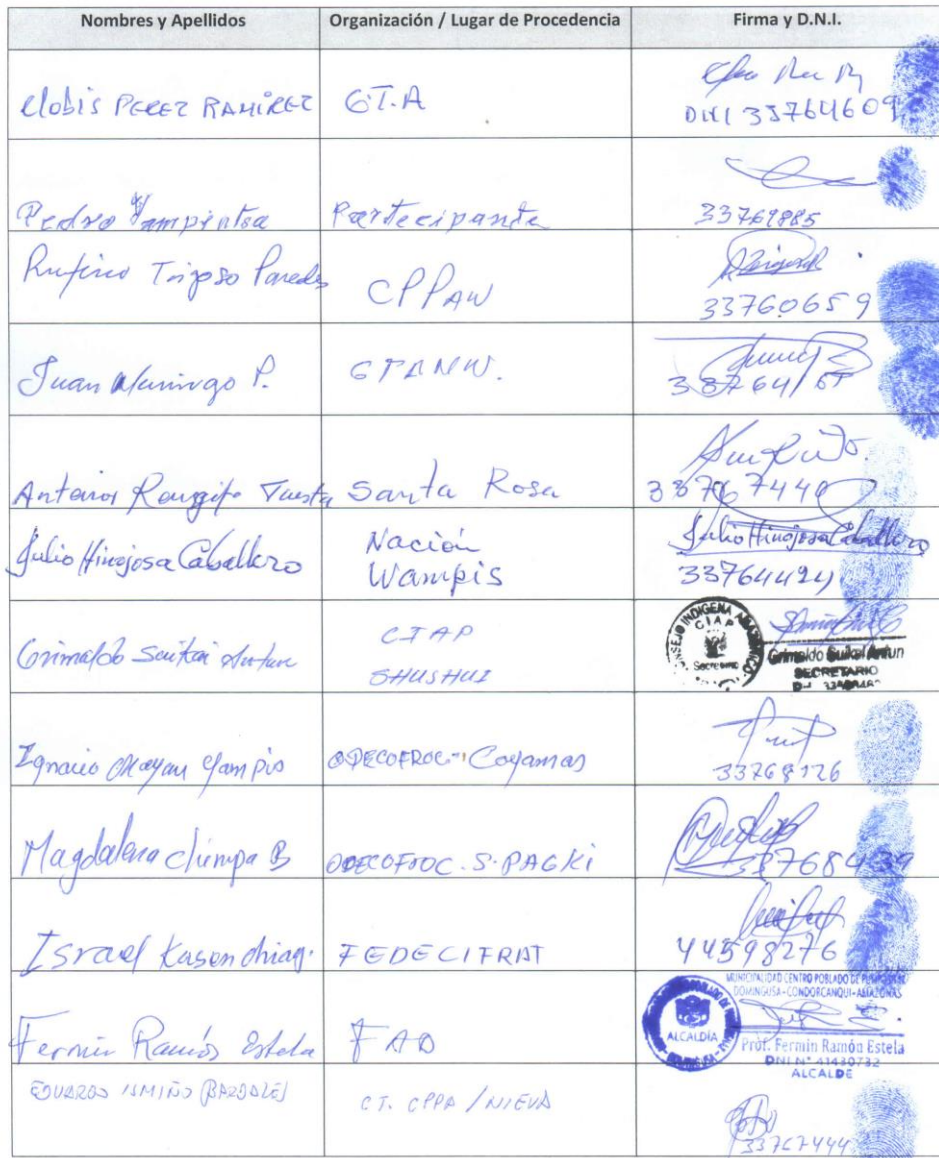 Nombres y Apellidos Organización / Lugar de Procedencia Firma y D.N.I.
Clobis PEREZ RAMÍREZ GT.A
DNI 33764609
Pedro Partecipante
33769885
Rufino Trigoso Paredes CPPAW
33760659
Juan P. GTANW.
Antenor Rengifo Santa Rosa
Julio Hinojosa Caballero Nación
Wampis
Julio Hinojosa Caballero
33764424
Grimaldo CIAP
SHUSHUI
CIAP
Secretario
Grimaldo Antun
SECRETARIO
Ignacio Yampis ODECOFROC - Coyamas
33768126
Magdalena chimpa B ODECOFROC . S. PAGKI
Israel FEDECIFRAT
44598276
Fermin Ramón Estela FAD
MUNICIPALIDAD CENTRO POBLADO DE
DOMINGUSA-CONDORCANQUI-AMAZONAS
ALCALDÍA
Prof. Fermin Ramón Estela
DNI N° 41430732
ALCALDE
EDUARDO ISMIÑO CT. CPPA / NIEVA
33767444